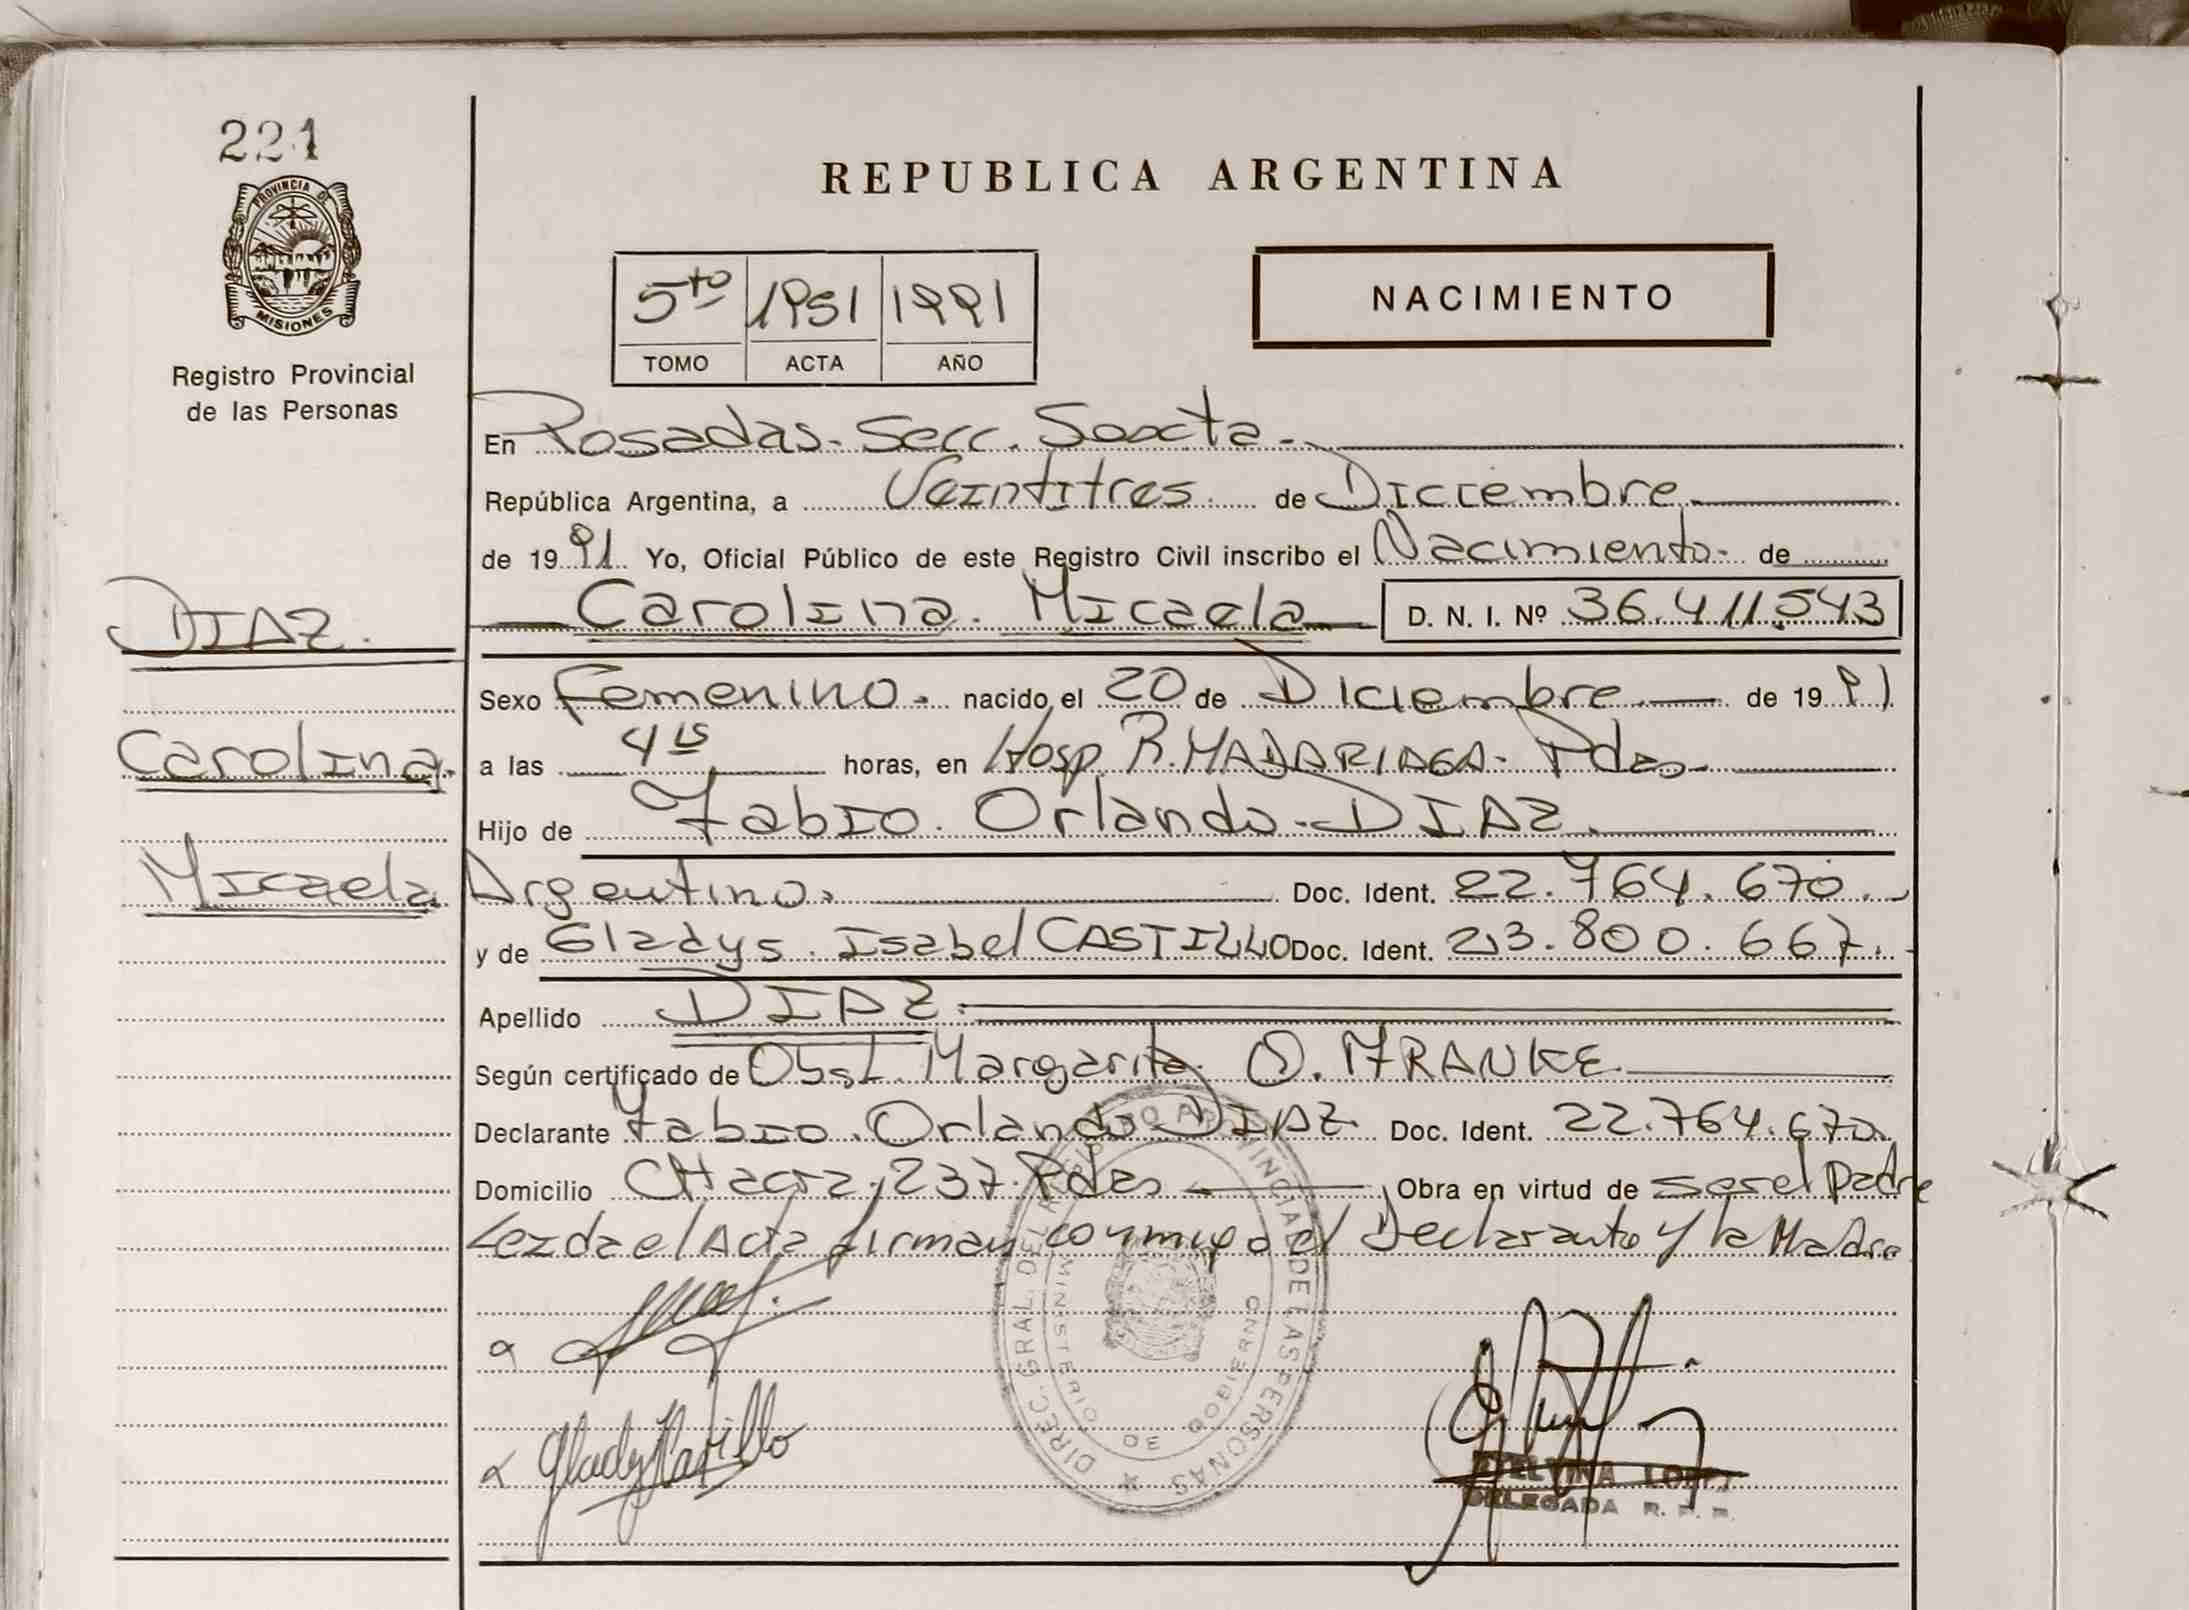 221
PROVINCIA DE
MISIONES
Registro Provincial
de las Personas
REPUBLICA ARGENTINA
5to 1951 1991
TOMO ACTA AÑO
NACIMIENTO
En Posadas. Secc. Sexta.
República Argentina, a Veintitres. de Diciembre.
de 1991. Yo, Oficial Público de este Registro Civil inscribo el Nacimiento. de
Carolina. Micaela D. N. I. Nº 36.411.543
DIAZ.
Carolina.
Micaela
Sexo Femenino. nacido el 20 de Diciembre. de 1991
a las 4 15 horas, en Hosp R. MADARIAGA. Pdas.
Hijo de Fabio. Orlando. DIAZ.
Argentino. Doc. Ident. 22.764.670.
y de Gladys. Isabel CASTILLO Doc. Ident. 23.800.667.
Apellido DIAZ.
Según certificado de Obst. Margarita O. FRANKE.
Declarante Fabio. Orlando. DIAZ. Doc. Ident. 22.764.670.
Domicilio CHacra. 237. Pdas. Obra en virtud de ser el Padre
Leida el Acta firman conmigo el Declarante y la Madre
DIREC. GRAL. DEL REGISTRO PROVINCIAL DE LAS PERSONAS
MINISTERIO DE GOBIERNO
ETELVINA LOPEZ
DELEGADA R. P. P.